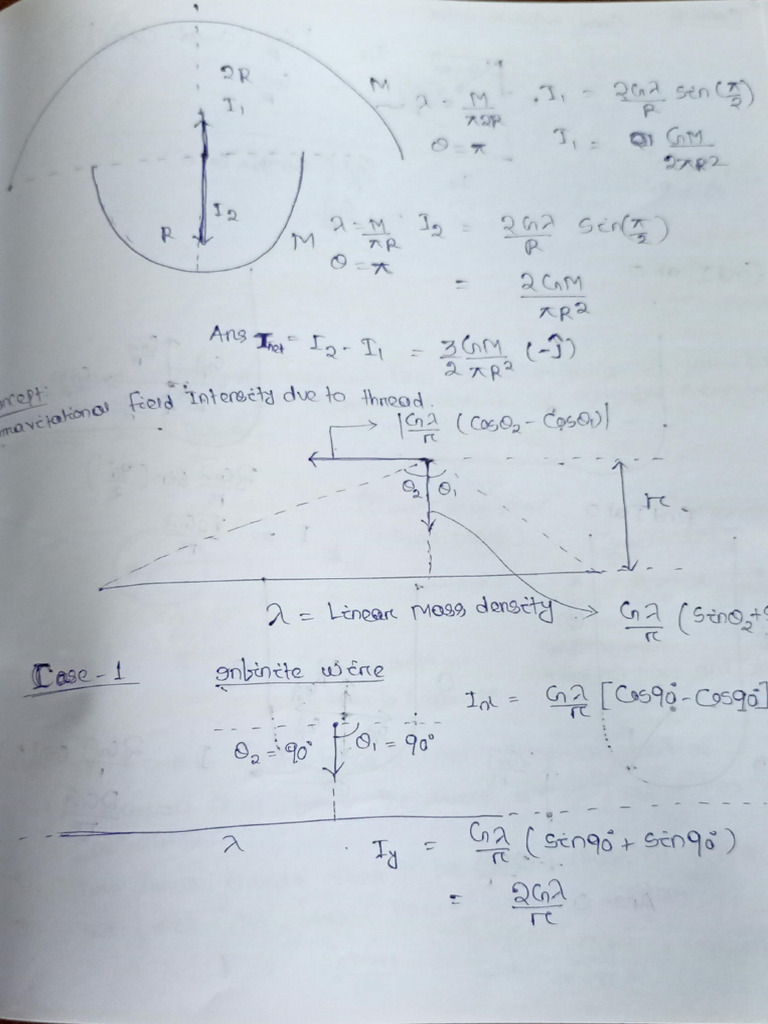 2R
I₁
M
λ = M/π2R . I₁ = 2Gλ/R sin(π/2)
θ = π I₁ = GM/2πR²
I₂
R
M
λ = M/πR I₂ = 2Gλ/R sin(π/2)
θ = π
= 2GM/πR²
Ans Inet = I₂ - I₁ = 3GM/2πR² (-ĵ)
field Intensity due to thread.
|Gλ/r (Cosθ₂ - Cosθ₁)|
θ₂ θ₁
r
λ = Linear Mass density Gλ/r (Sinθ₂+
Case-1 Infinite wire
Ix = Gλ/r [Cos90° - Cos90°]
θ₂ = 90° θ₁ = 90°
λ
Iy = Gλ/r (sin90° + sin90°)
= 2Gλ/r